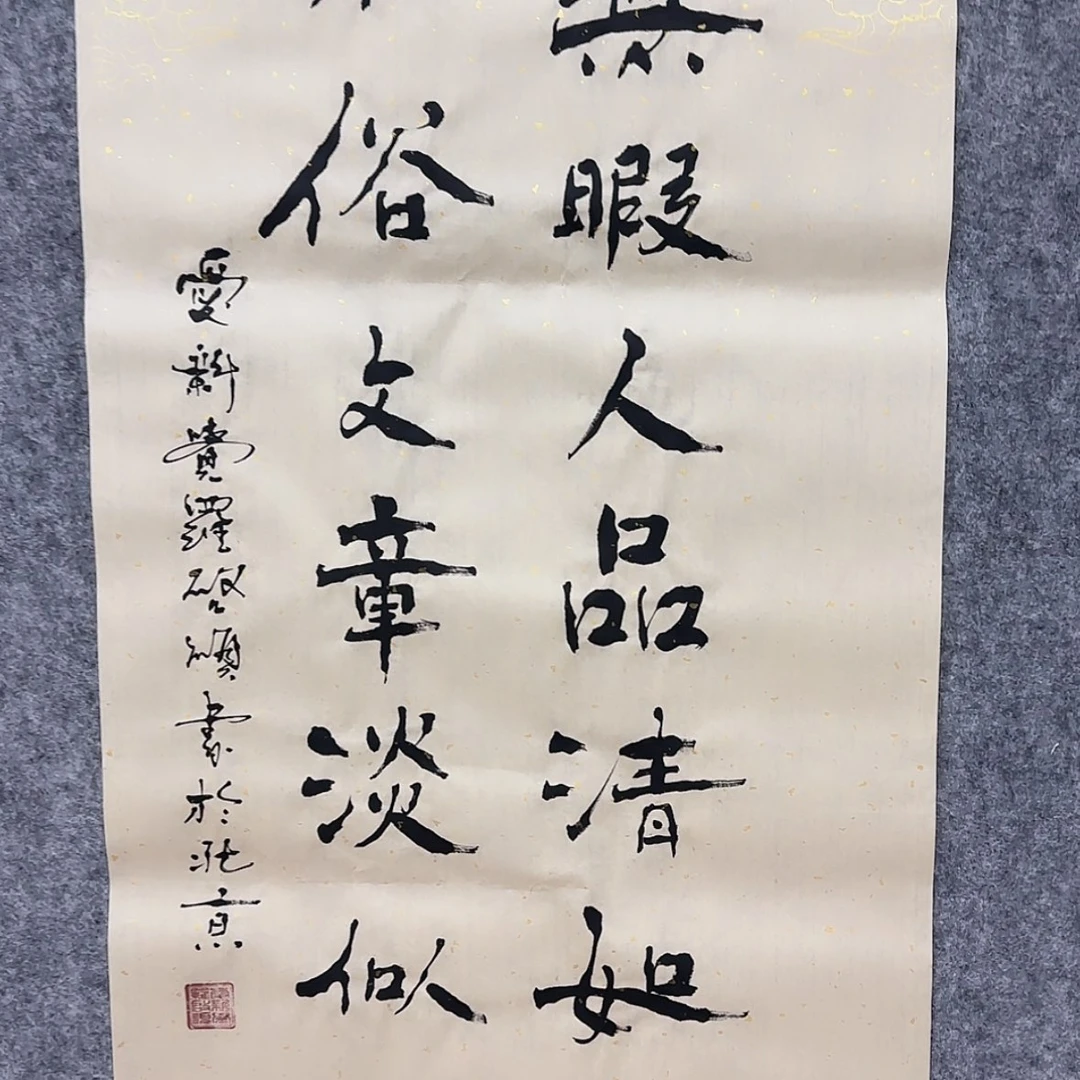 無暇人品清如
俗文章淡似
愛新覺羅啓頌書於北京